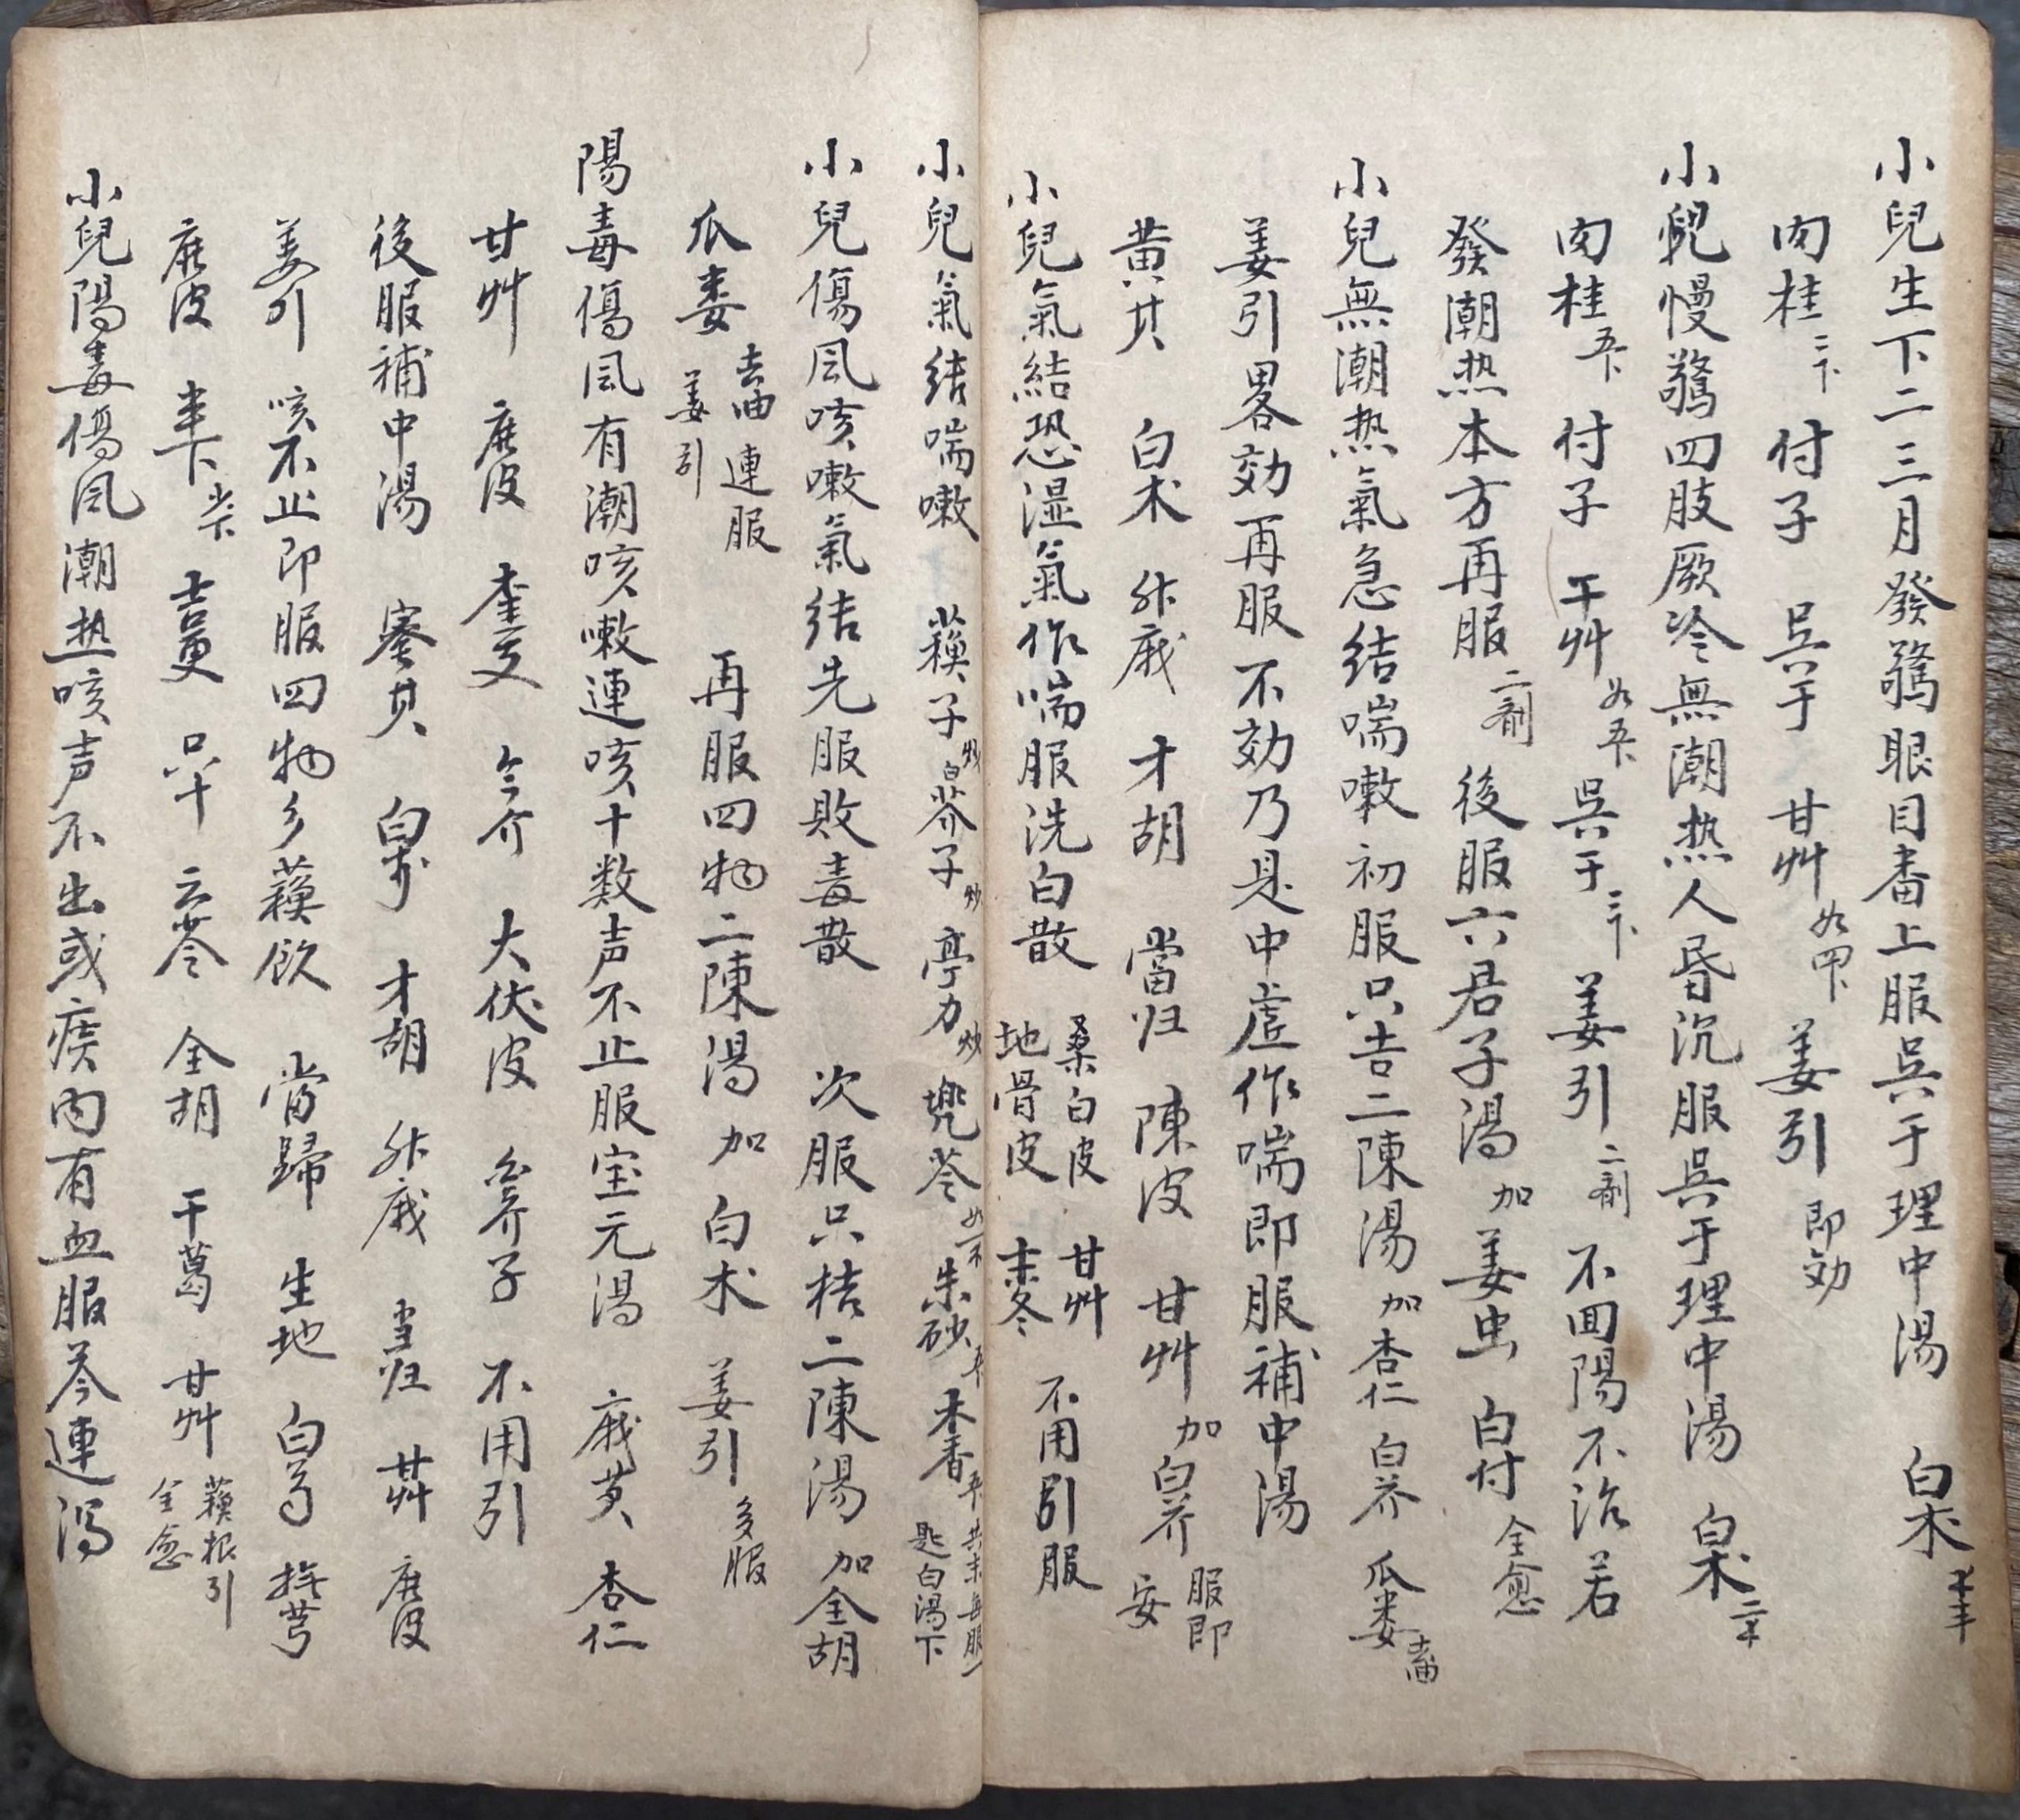 小兒生下二三月發驚眼目番上服吳于理中湯 白术
肉桂二下 付子 吳于 甘艸 姜引 即効
小兒慢驚四肢厥冷無潮热人昏沉服吳于理中湯 白术
肉桂 付子 干艸 吳于三下 姜引二剤 不囬陽不治若
發潮热本方再服二剤 後服六君子湯加姜虫 白付 全愈
小兒無潮热氣急结喘嗽初服只吉二陳湯加杏仁 白芥 瓜娄去油
姜引畧効再服不効乃是中虛作喘即服補中湯
黃芪 白术 升麻 才胡 當归 陳皮 甘艸加白芥 服即安
小兒氣結恐湿氣作喘服洗白散 桑白皮 地骨皮 甘艸 麦冬 不用引服
小兒氣结喘嗽 蘓子炒 白芥子炒 亭力炒 兜苓 朱砂 木香 共末每服一匙白湯下
小兒傷風咳嗽氣结先服敗毒散 次服只桔二陳湯加全胡
瓜娄去油 姜引 連服 再服四物二陳湯加 白术 姜引 多服
陽毒傷風有潮咳嗽連咳十数声不止服宝元湯 麻黄 杏仁
甘艸 陳皮 大伏皮 芥子 不用引
後服補中湯 蜜芪 白术 才胡 升麻 当归 甘艸 陳皮
姜引 咳不止即服四物参蘓飲 當歸 生地 白芍 撫芎
陳皮 半下 吉更 只十 云苓 全胡 干葛 甘艸 蘓根引 全愈
小兒陽毒傷風潮热咳声不出或痰内有血服芩連瀉